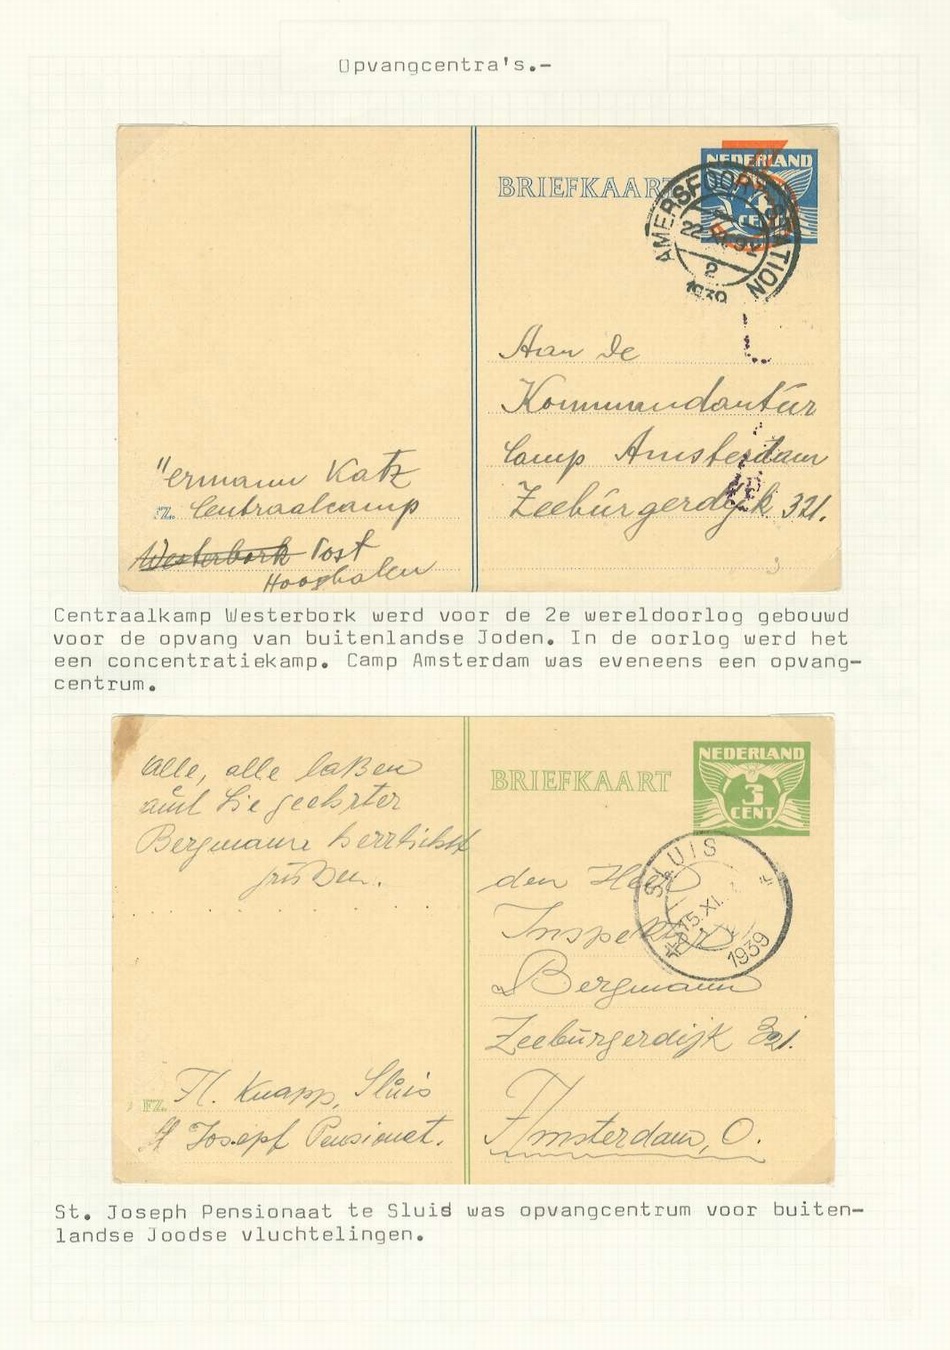 Opvangcentra's.-
NEDERLAND
BRIEFKAART
CENT
AMERSFOORT STATION
22 XI
2
1939
Aan de
Kommandantúr
Camp Amsterdam
Zeebúrgerdijk 321.
Hermann Katz
FZ. Centraalcamp
Westerbork Post
Hooghalen
Centraalkamp Westerbork werd voor de 2e wereldoorlog gebouwd
voor de opvang van buitenlandse Joden. In de oorlog werd het
een concentratiekamp. Camp Amsterdam was eveneens een opvang-
centrum.
Alle, alle laßen
aúch Sie geehrter
Bergmann herrlichst
grüßen.
NEDERLAND
BRIEFKAART
3
CENT
SLUIS
15.XI.
1939
den Heer
Inspektor
Bergmann
Zeebúrgerdijk 321.
Amsterdam, O.
FZ. Fl. Knapp, Slúis
St Josepf Pensionat.
St. Joseph Pensionaat te Sluis was opvangcentrum voor buiten-
landse Joodse vluchtelingen.